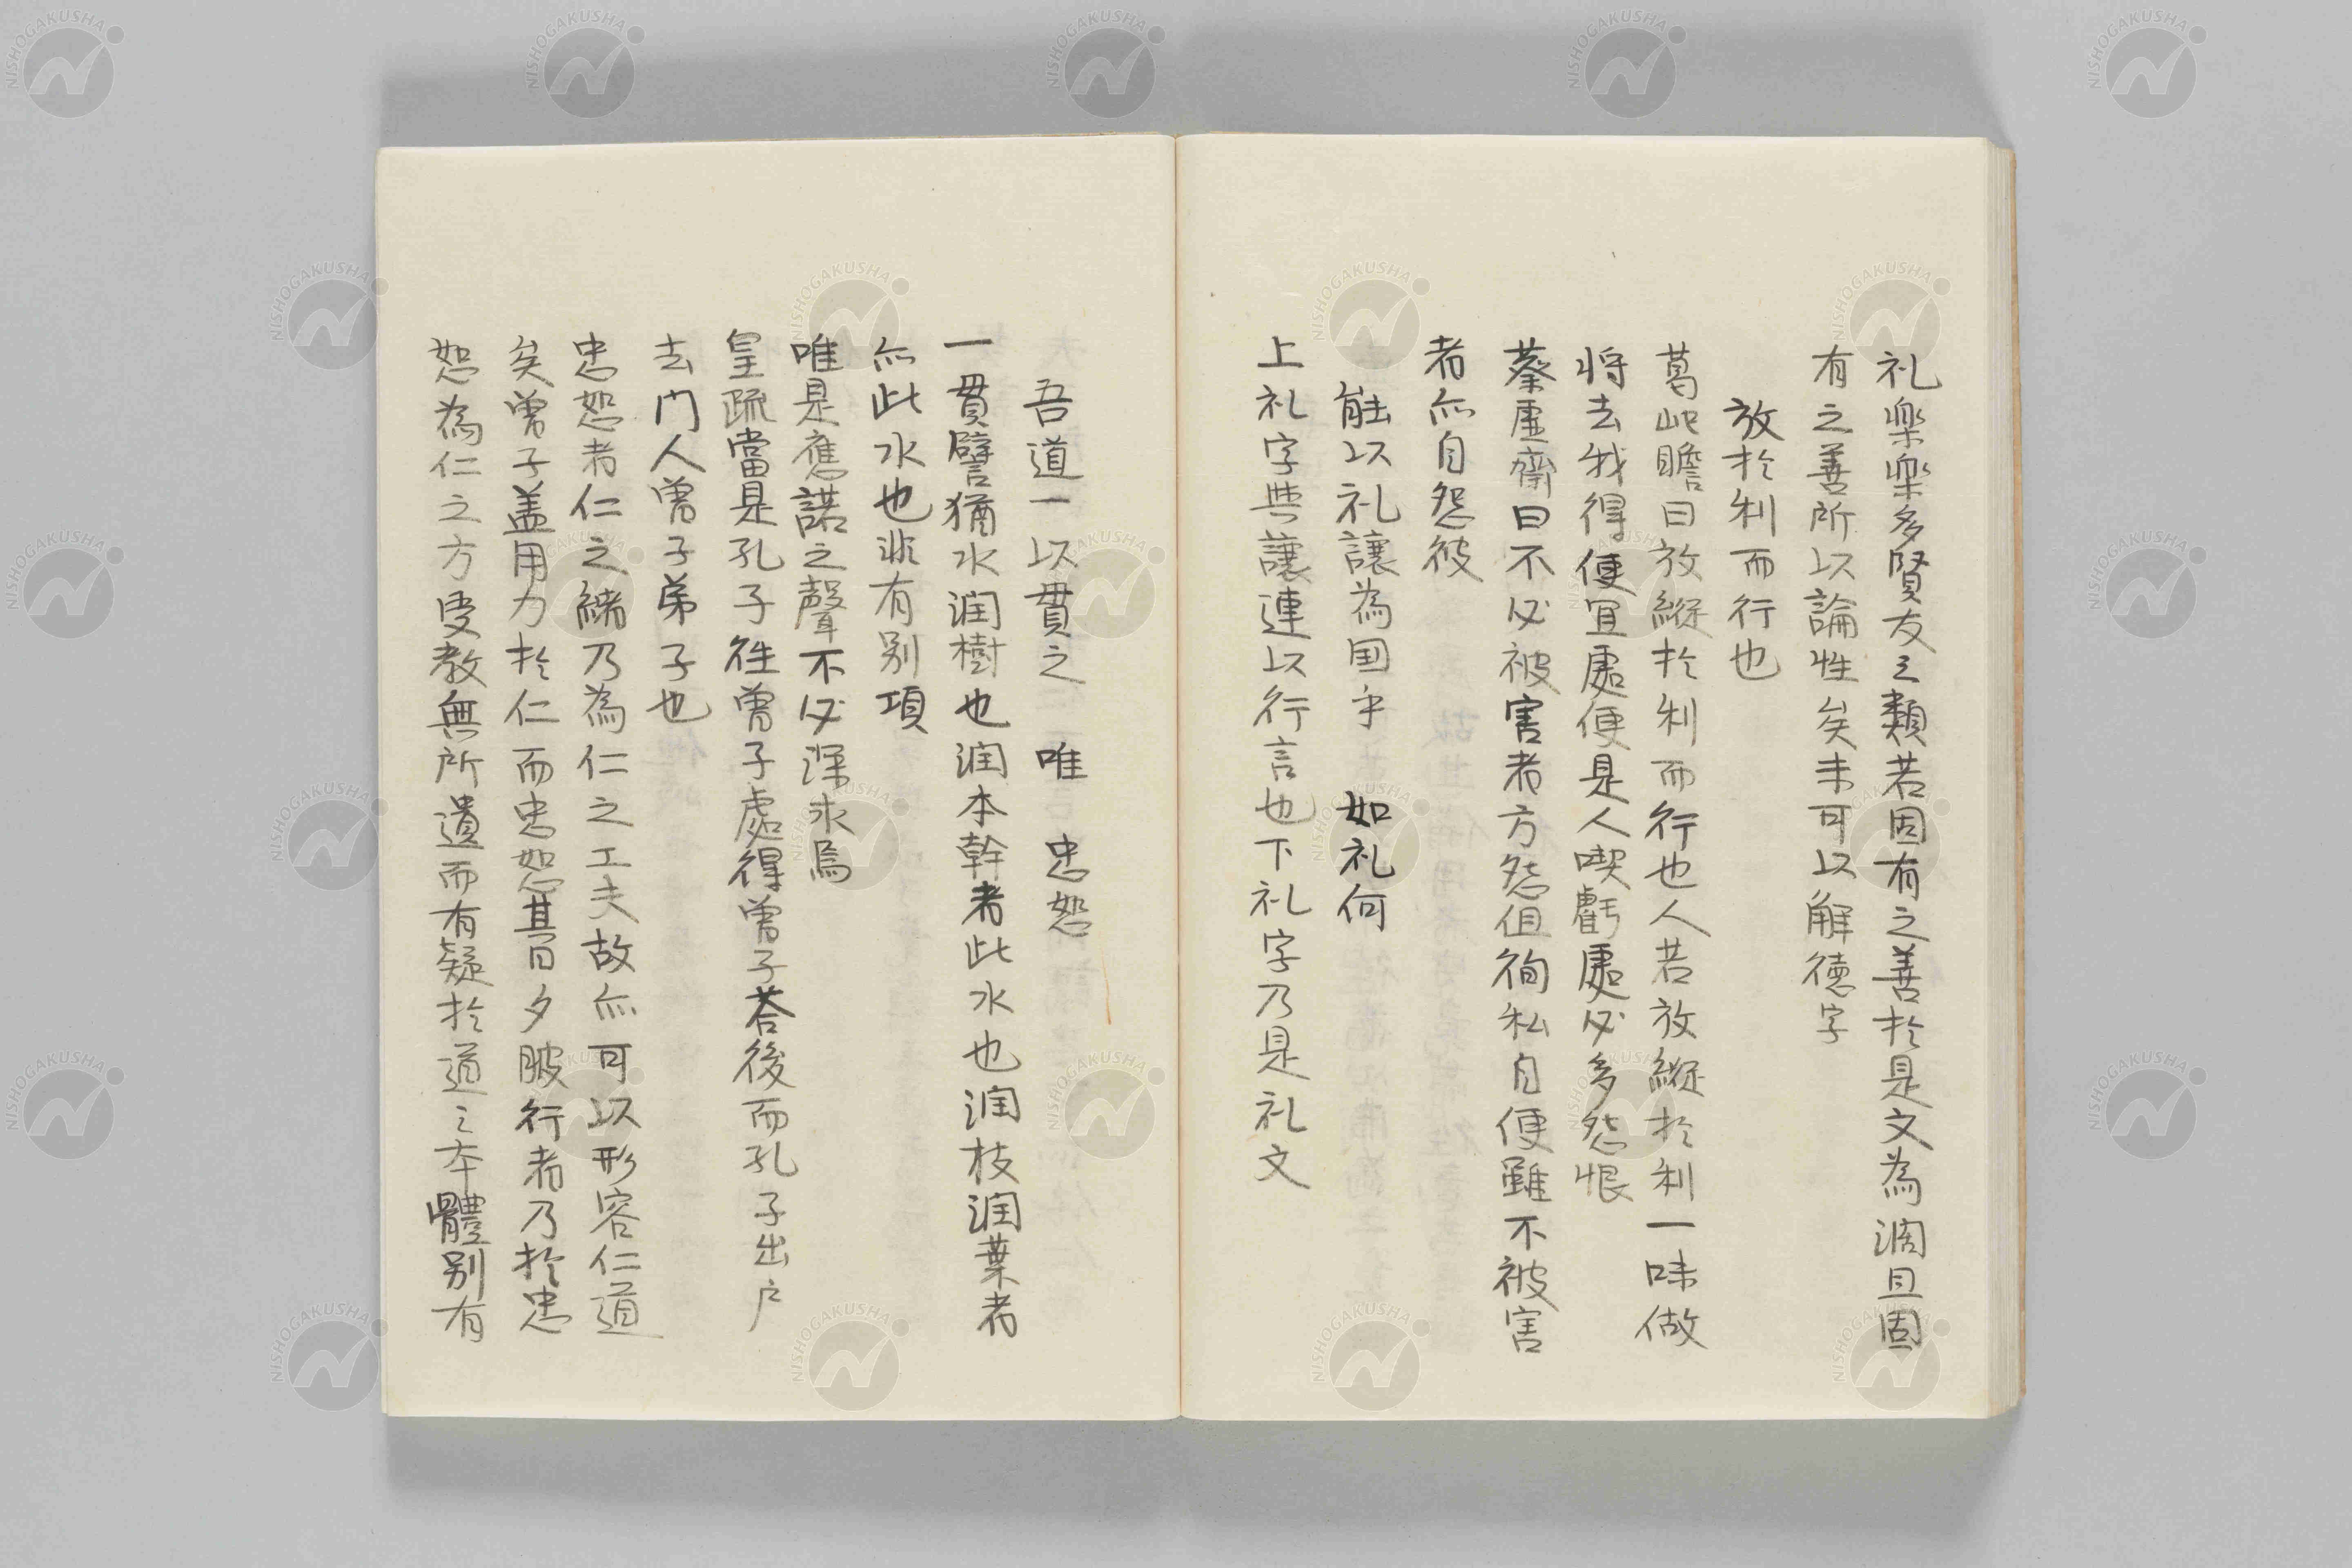 礼楽楽多賢友之類若固有之善於是文為濶且固
有之善所以論性矣未可以解徳字
放於利而行也
葛屺瞻曰放縦於利而行也人若放縦於利一味做
将去我得便宜處便是人喫虧處必多怨恨
蔡虚齋曰不必被害者方怨但徇私自便雖不被害
者亦自怨彼
能以礼讓為国乎 如礼何
上礼字與讓連以行言也下礼字乃是礼文
吾道一以貫之 唯 忠恕
一貫譬猶水潤樹也潤本幹者此水也潤枝潤葉者
亦此水也非有別項
唯是應諾之聲不必深求焉
皇疏當是孔子往曽子處得曽子荅後而孔子出戸
去門人曽子弟子也
忠恕者仁之緒乃為仁之工夫故亦可以形容仁道
矣曽子盖用力於仁而忠恕其日夕服行者乃於忠
恕為仁之方受教無所遺而有疑於道之本體別有